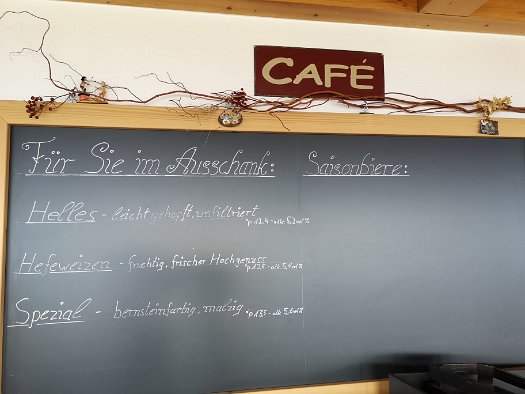 CAFÉ
Für Sie im Ausschank:
Saisonbiere:
Helles - leicht gehopft, unfiltriert
°p 12,4 - alk. 5,2 vol %
Hefeweizen - fruchtig, frischer Hochgenuss
°p 12,5 - alk. 5,4 vol %
Spezial - bernsteinfarbig, malzig
°p 13,5 - alk. 5,6 vol %